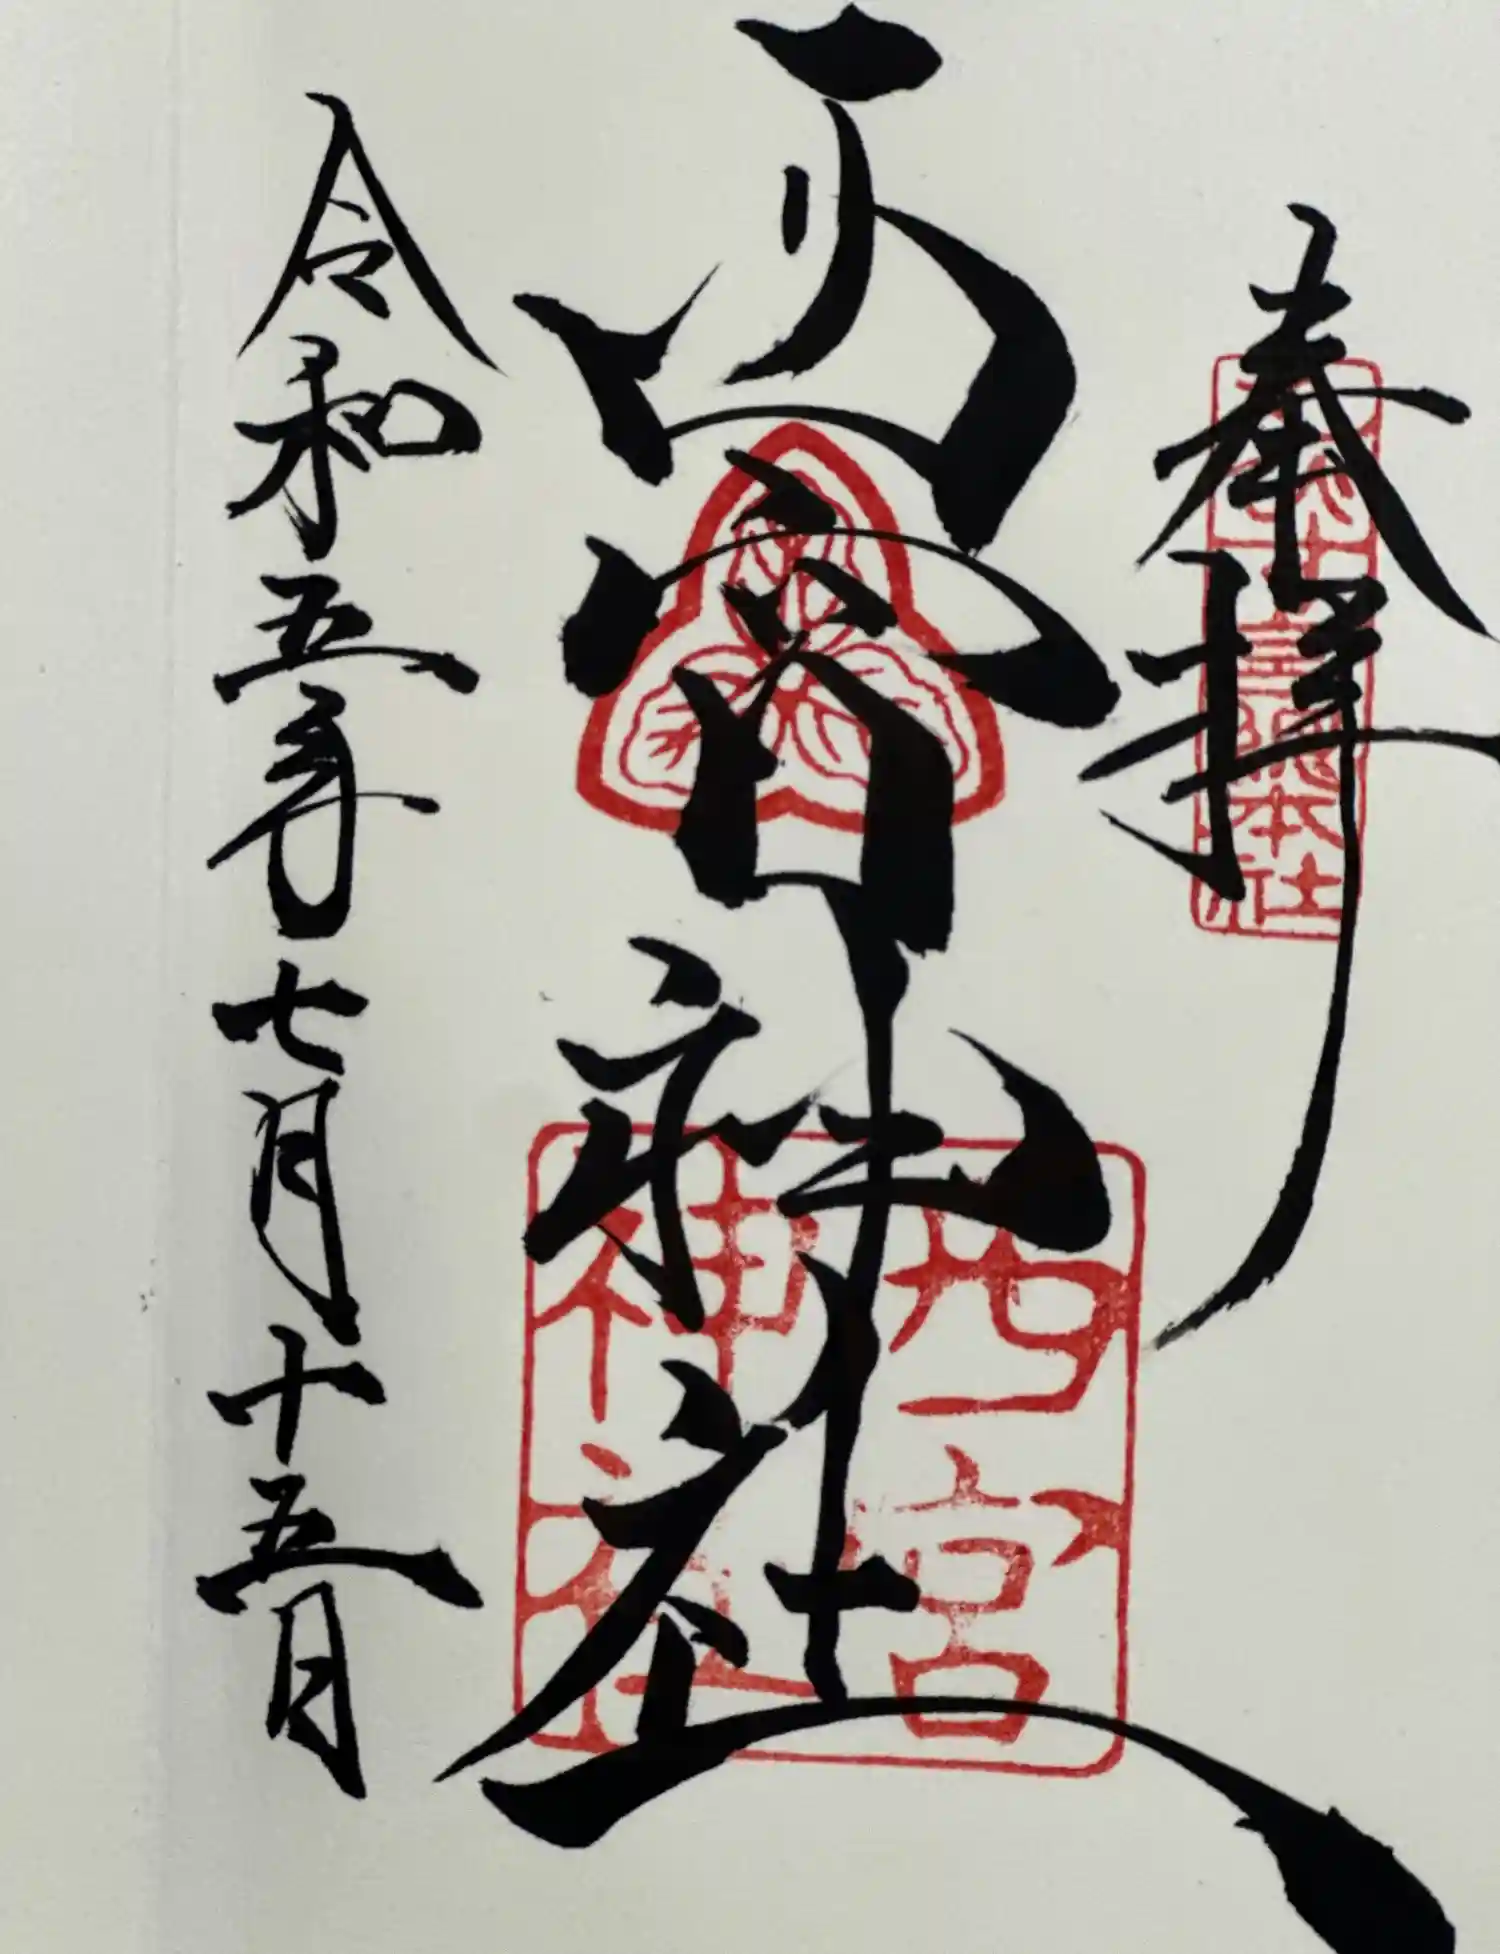 奉拝
西宮神社
西宮神社
令和五年七月十五日